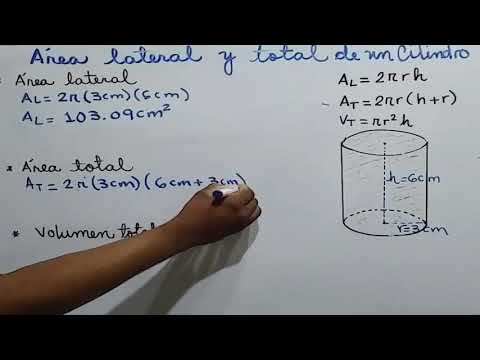 Área lateral y total de un Cilindro
* Área lateral
AL = 2π(3cm)(6cm)
AL = 103.09cm²
* Área total
AT = 2π(3cm)(6cm+3cm)
* Volumen total
AL = 2πrh
AT = 2πr(h+r)
VT = πr²h
h=6cm
r=3cm